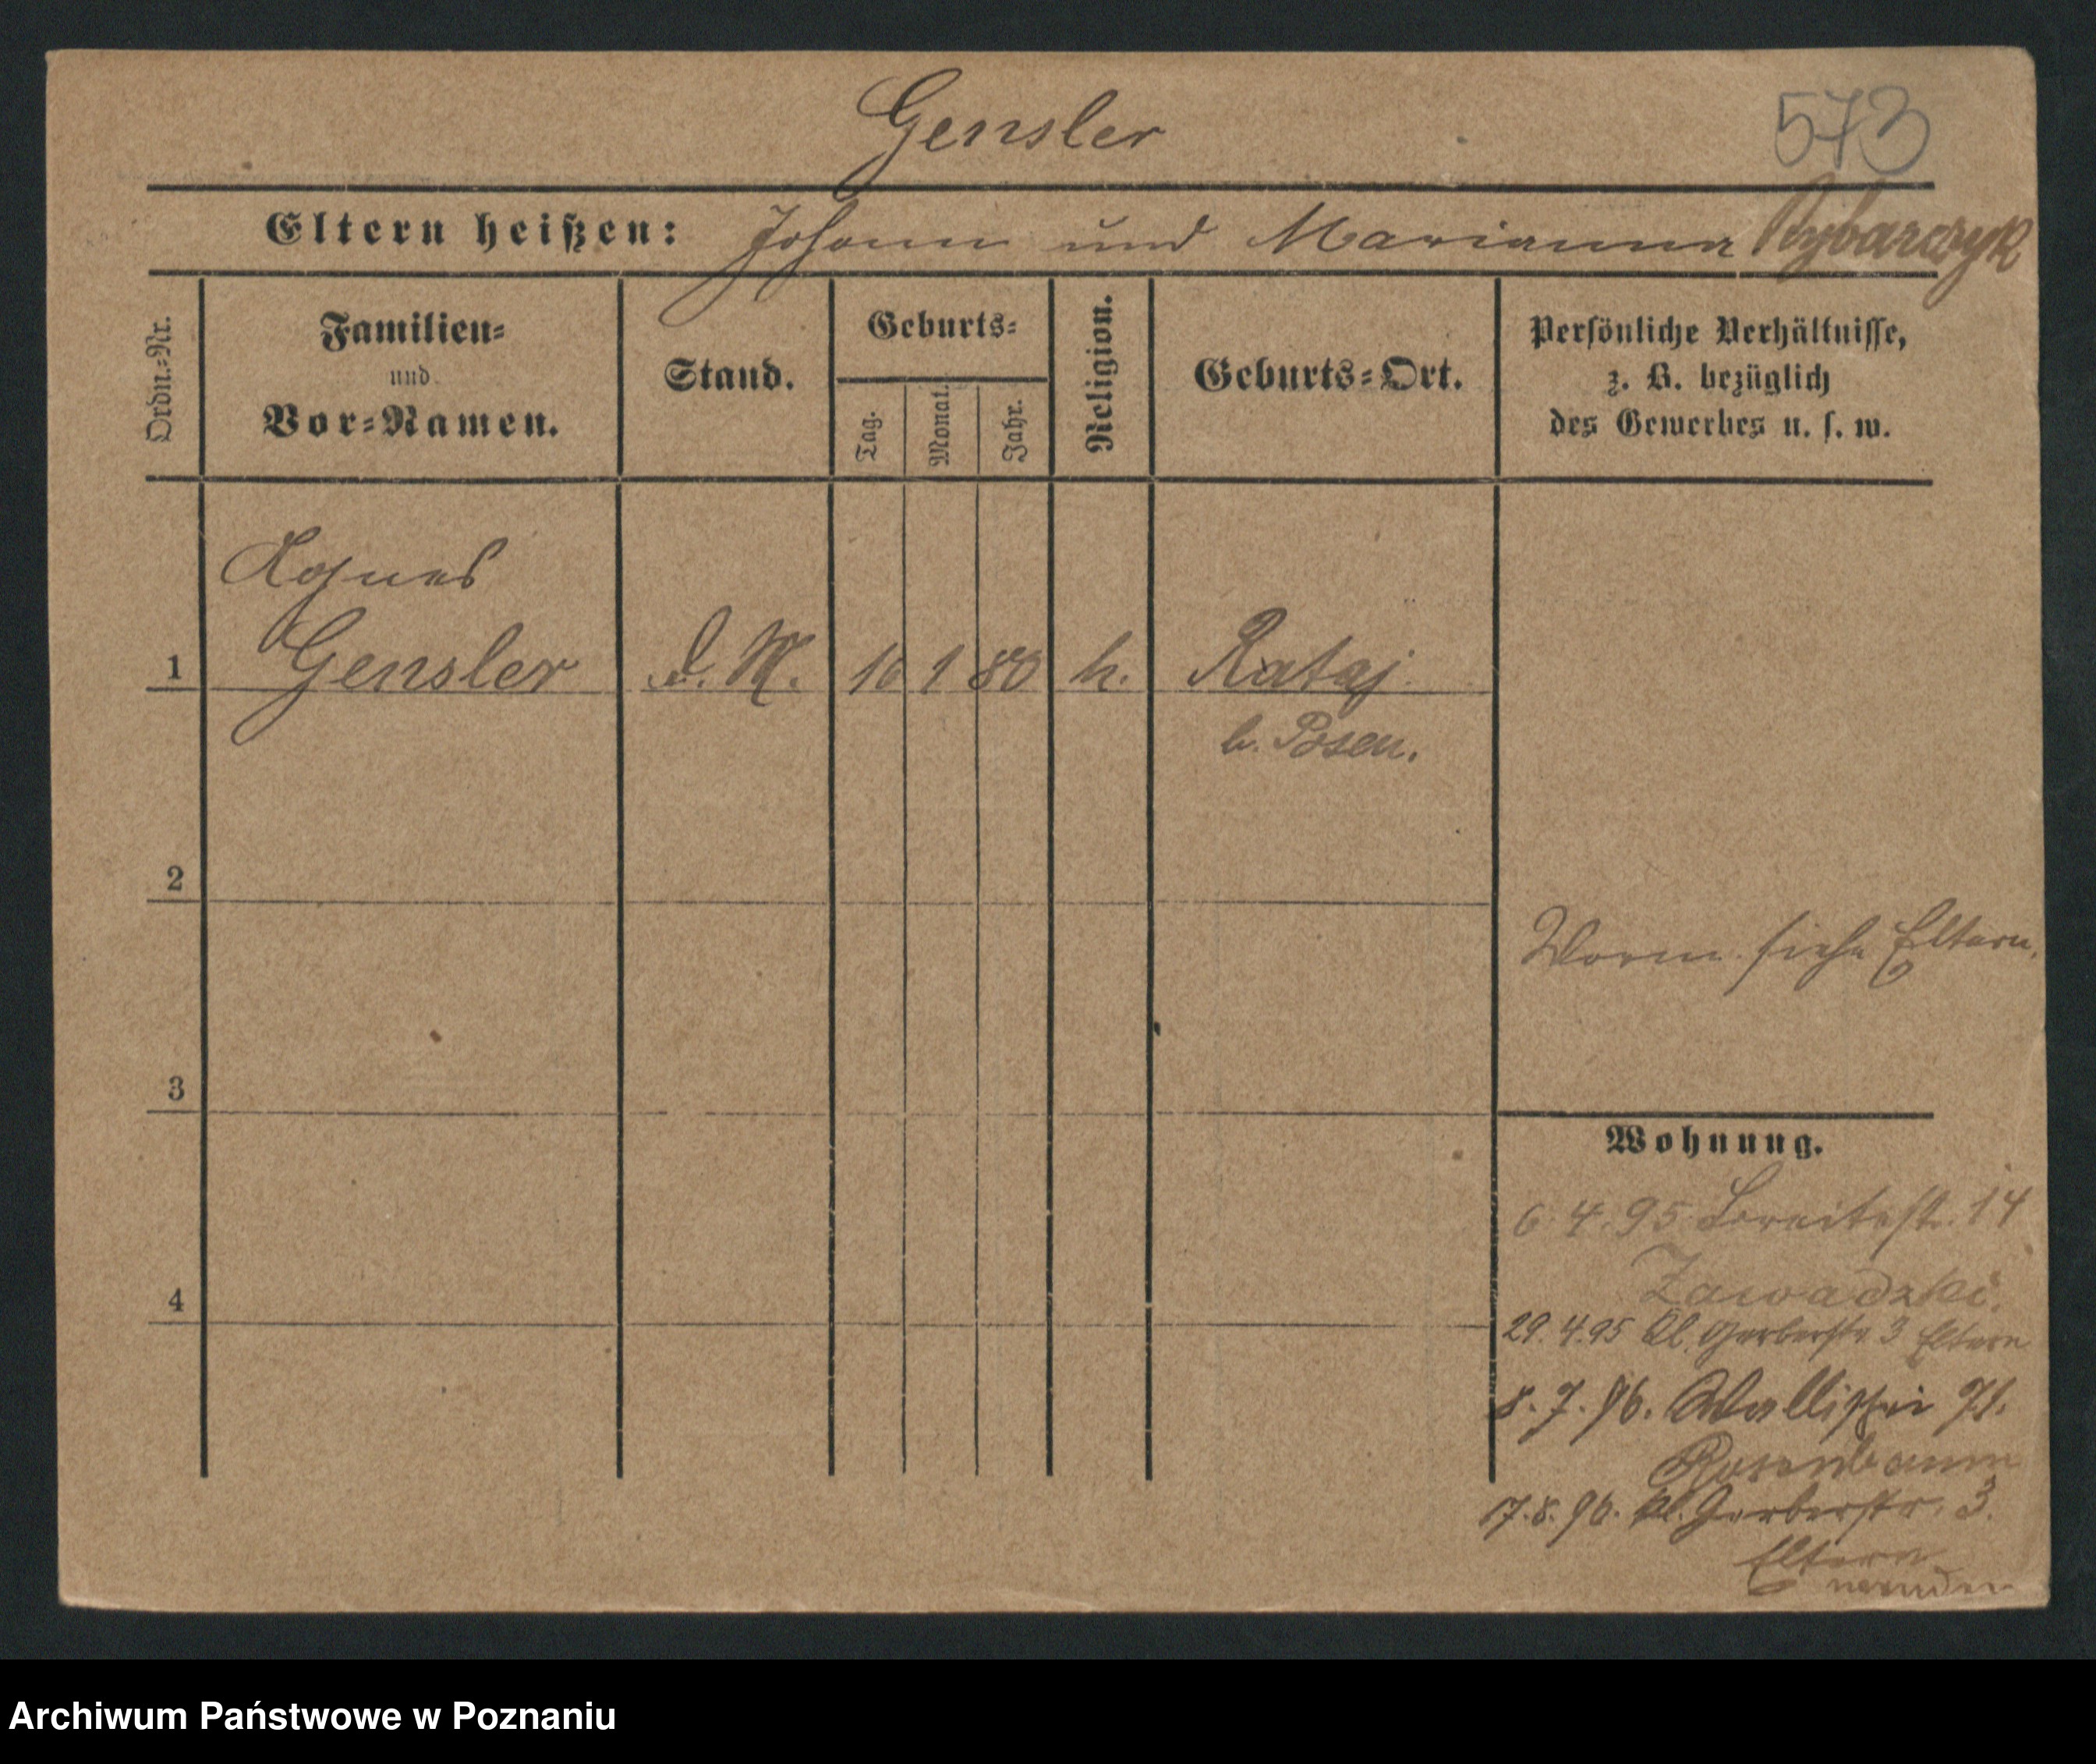 Gensler
573
Eltern heißen: Johann und Marianna Rybarczyk
Ordn.-Nr.
Familien-
und
Vor-Namen.
Stand.
Geburts-
Tag.
Monat.
Jahr.
Religion.
Geburts-Ort.
Persönliche Verhältnisse,
z. B. bezüglich
des Gewerbes u. s. w.
Agnes
1 Gensler d. M. 16 1 80 k. Rataj
b. Posen.
2
Vorm. siehe Eltern.
3
Wohnung.
6. 4. 95. Breitestr. 14
Zawadzki.
4
29. 4. 95 Kl. Gerberstr 3 Eltern
8. 7. 96. Wallischei 71.
Rosenbaum
17. 8. 96. Kl. Gerberstr. 3.
Eltern
wenden
Archiwum Państwowe w Poznaniu